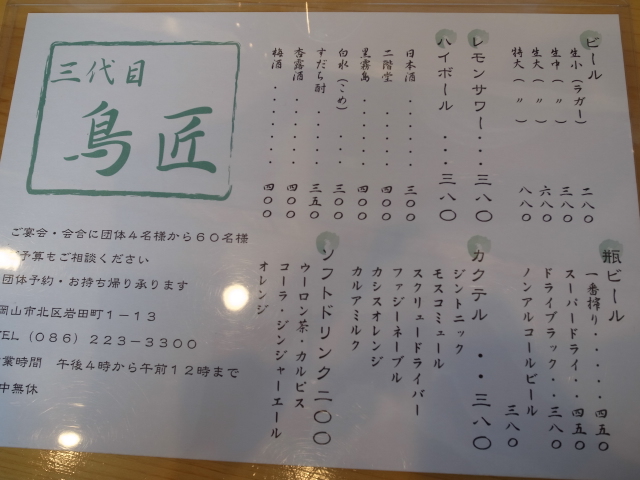 ビール
生小（ラガー） 二八〇
生中（〃） 三八〇
生大（〃） 六八〇
特大（〃） 八八〇
レモンサワー・・・三八〇
ハイボール・・・三八〇
日本酒・・・・・三〇〇
二階堂・・・・・四〇〇
黒霧島・・・・・四〇〇
白水（こめ）・・・三〇〇
すだち酎・・・・三五〇
杏露酒・・・・・四〇〇
梅酒・・・・・・四〇〇
瓶ビール
一番搾り・・・・・四五〇
スーパードライ・・四五〇
ドライブラック・・三八〇
ノンアルコールビール 三八〇
カクテル・・三八〇
ジントニック
モスコミュール
スクリュードライバー
ファジーネーブル
カシスオレンジ
カルアミルク
ソフトドリンク二〇〇
ウーロン茶・カルピス
コーラ・ジンジャーエール
オレンジ
三代目
鳥匠
ご宴会・会合に団体４名様から６０名様
予算もご相談ください
団体予約・お持ち帰り承ります
岡山市北区岩田町１－１３
TEL（０８６）２２３－３３００
営業時間 午後４時から午前１２時まで
中無休